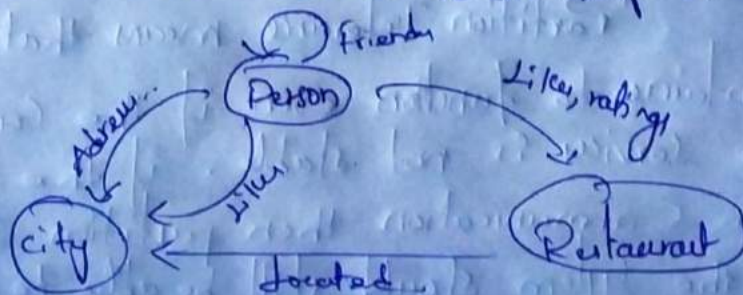 Friends
Person
Likes, ratings
Adress..
Likes
City
Restaurant
Located